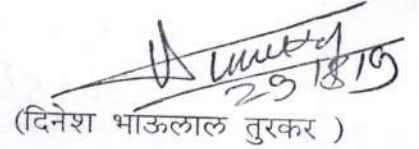 29/8/19
(दिनेश भाऊलाल तुरकर )